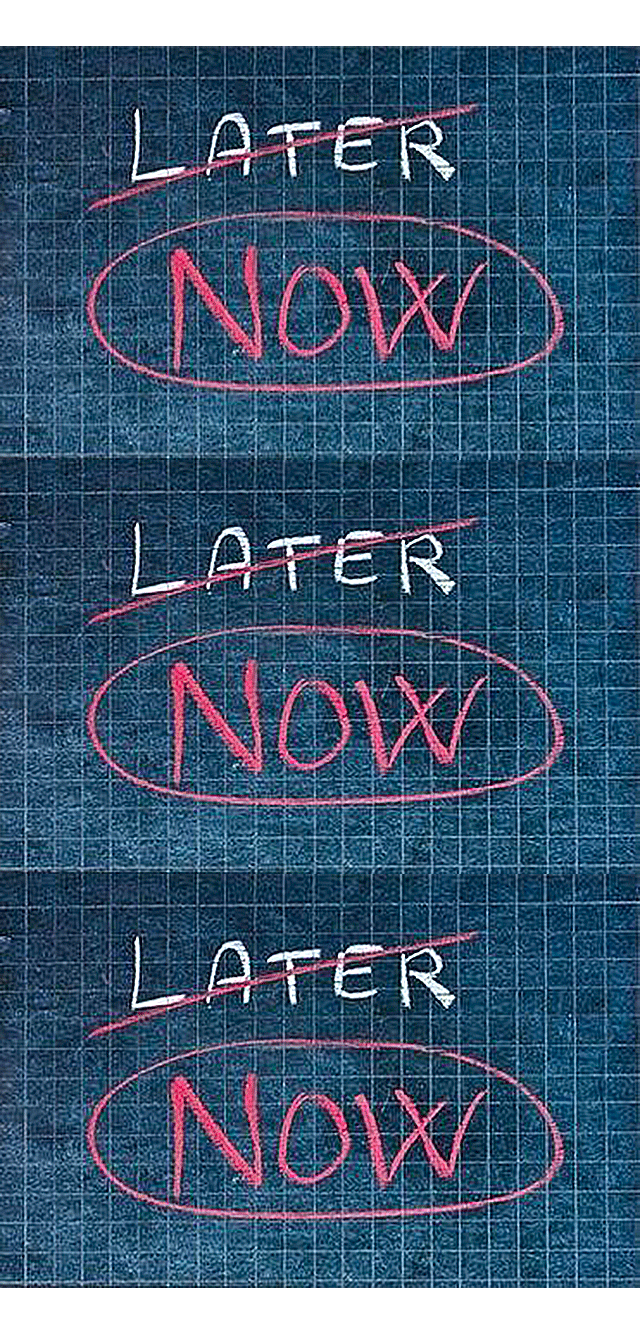 LATER
NOW
LATER
NOW
LATER
NOW